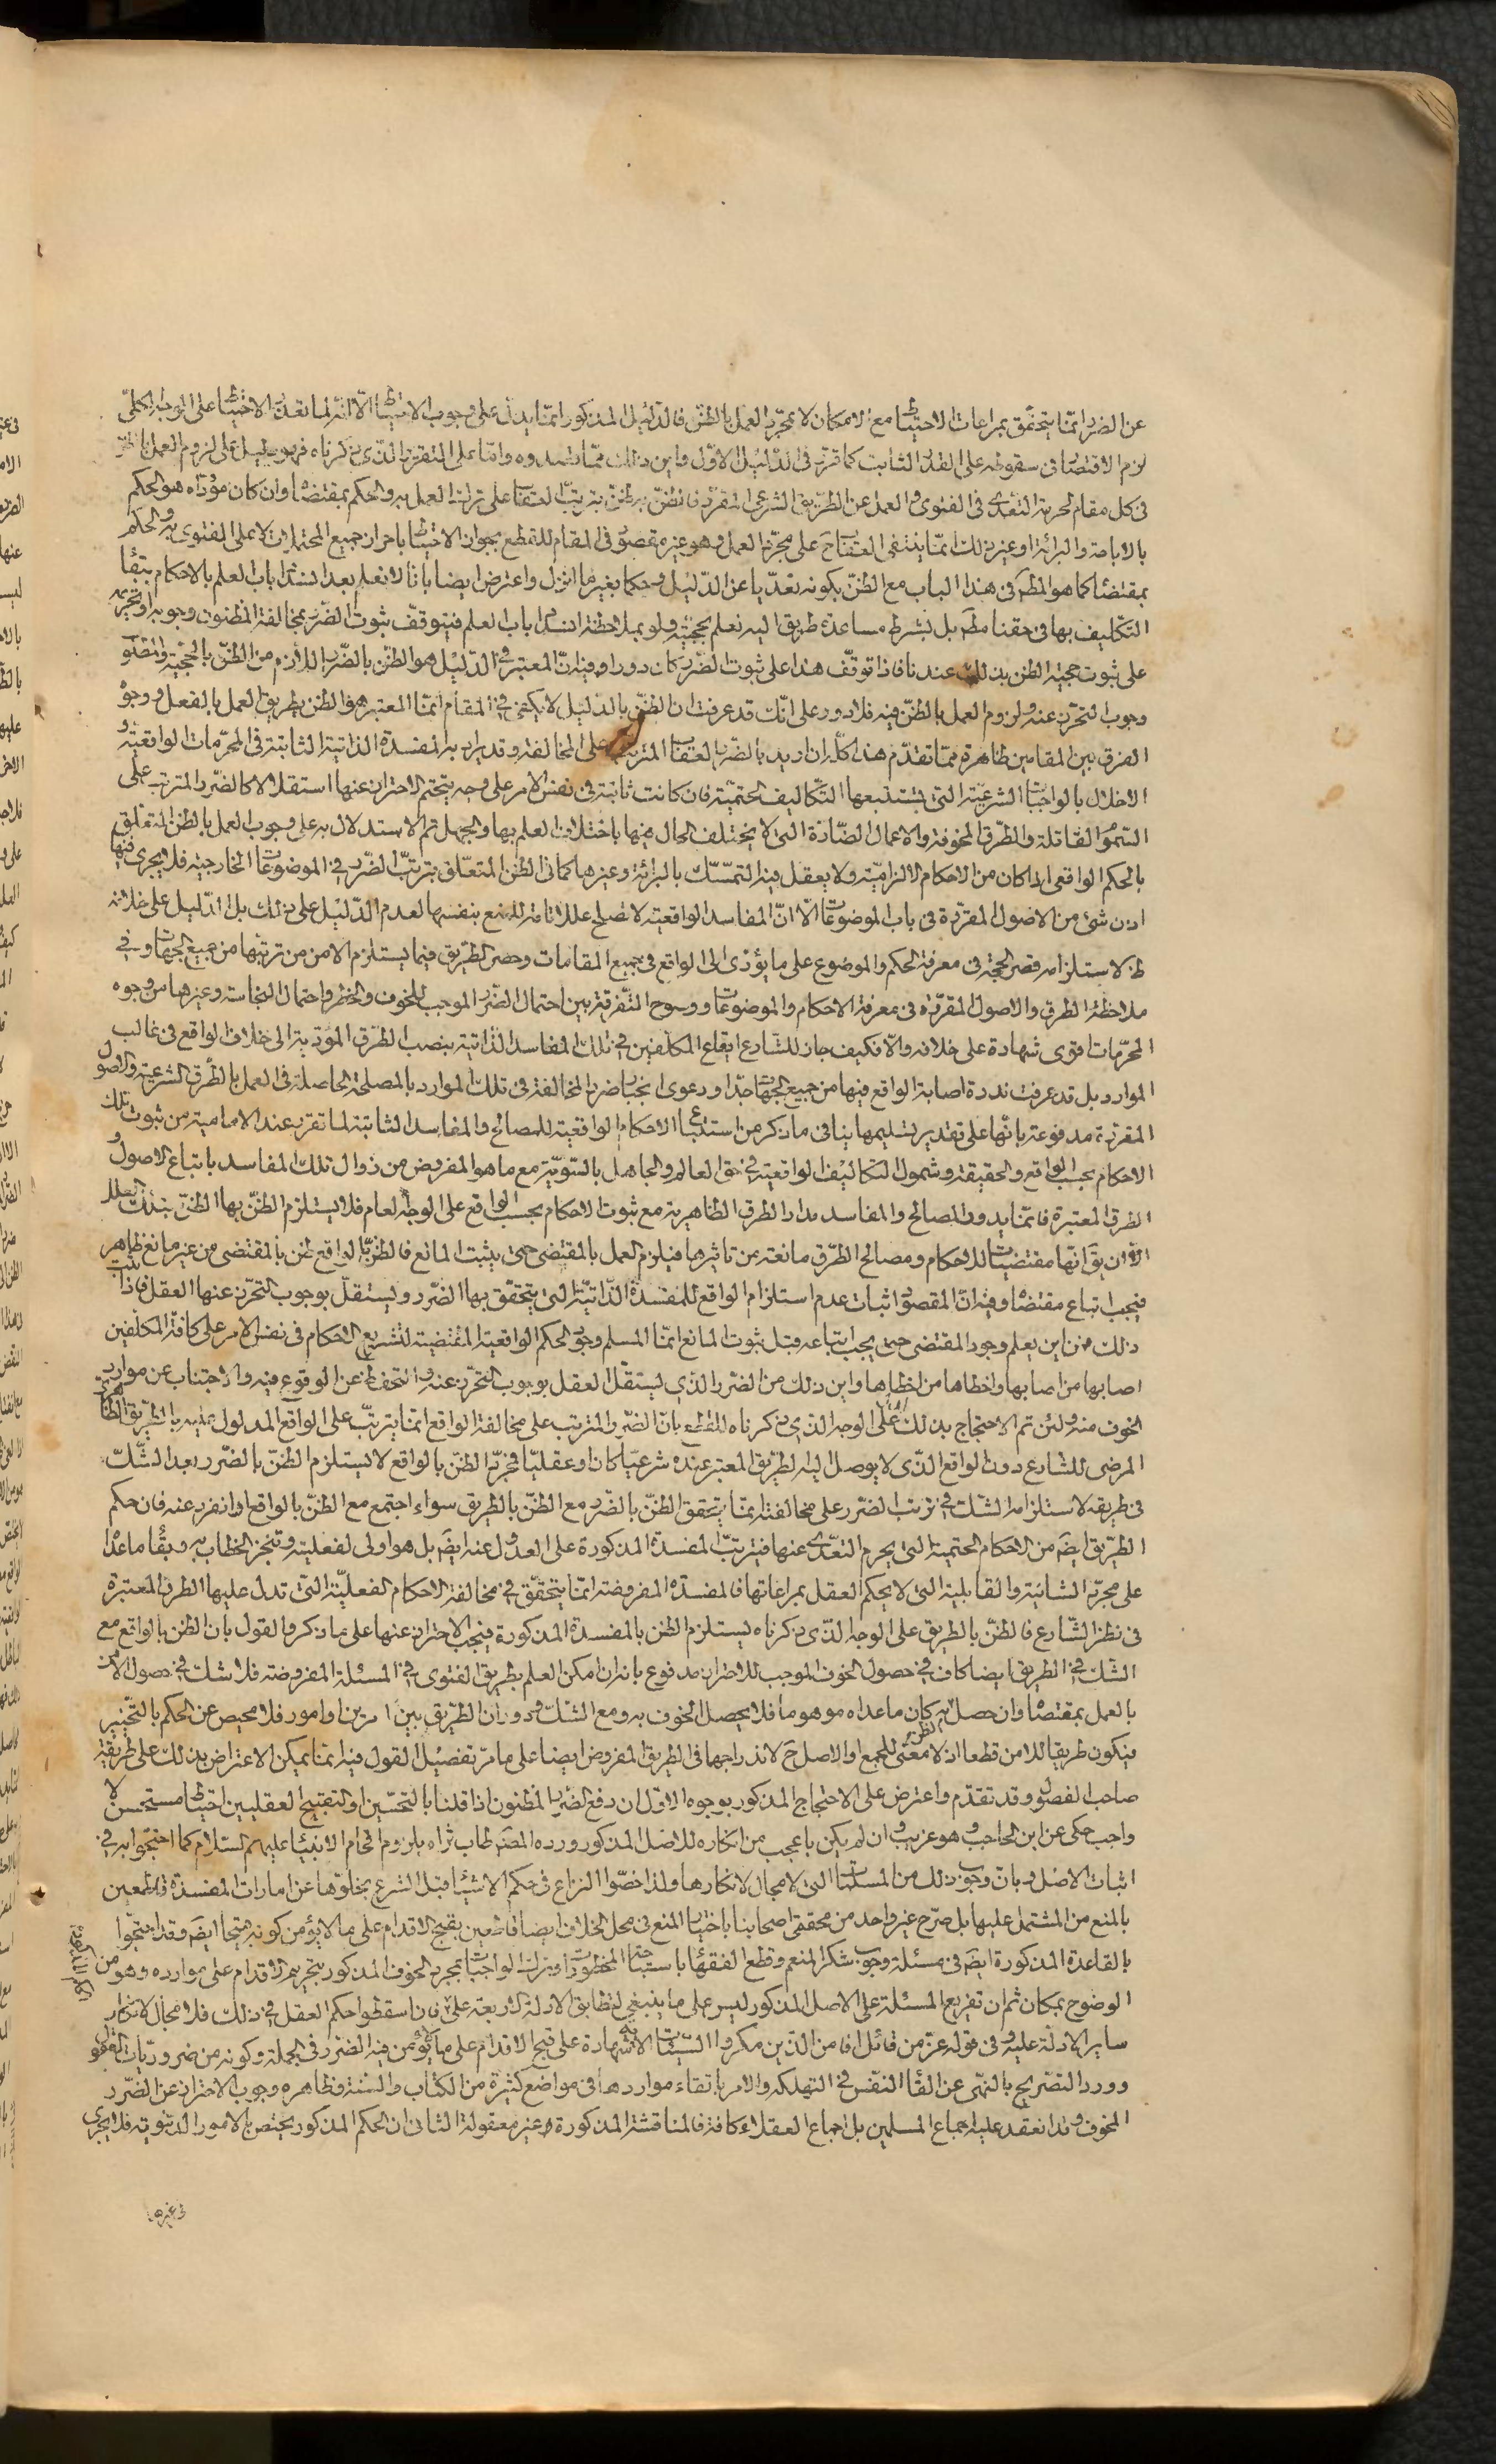 عن الضرر انما يتحقق بمراعات الاحتياط مع الامكان لا بمجرد العمل بالظن فالدليل المذكور انما يدل على وجوب الاحتياط الا انه لما تعذر الاحتياط على الوجه الكلى
لزم الاقتصار فى سقوطه على القدر الثابت كما قرر فى الدليل الاول واين ذلك مما قصدوه واما على التقرير الذى ذكرناه فهو دليل على لزوم العمل بالظن
فى كل مقام لحرمة التعدى فى الفتوى والعمل عن الطريق الشرعى المقرر فالظن به ظن بترتب العقاب على ترك العمل به والحكم بمقتضاه وان كان مؤداه هو الحكم
بالاباحة والبرائة او غير ذلك مما ينتفى العقاب ح على مجرد العمل وهو غير مقصور فى المقام للقطع بجواز الاحتياط باحراز جميع المحتملات لا على الفتوى به والحكم
بمقتضاه كما هو المطم فى هذا الباب مع الظن بكونه تعديا عن الدليل وحكما بغير ما انزل واعترض ايضا بانا لا نعلم بعد انسداد باب العلم بالاحكام ببقاء
التكليف بها فى حقنا مطم بل بشرط مساعدة طريق اليه نعلم بحجيته ولو بملاحظة انسداد باب العلم فيتوقف ثبوت الضرر بمخالفة المظنون وجوبه او تحريمه
على ثبوت حجية الظن بذلك عندنا فاذا توقف هذا على ثبوت الضرر كان دورا وفيه ان المعتبر فى الدليل هو الظن بالضرر اللازم من الظن بالحجية
وجوب التحرز عنه ولزوم العمل بالظن فيه فلا دور على انك قد عرفت ان الظن بالدليل لا يكفى فى المقام انما المعتبر هو الظن بطريق العمل بالفعل ووجوه
الفرق بين المقامين ظاهرة مما تقدم هذا كله ان اريد بالضرر العقاب المترتب على المخالفة وقد يراد به المفسدة الذاتية الثابتة فى المحرمات الواقعية و
الاخلال بالواجبات الشرعية التى يستتبعها التكاليف الحتمية فان كانت ثابتة فى نفس الامر على وجه يتحتم الاحتراز عنها استقلالا كالضرر المترتب على
السموم القاتلة والطرق المخوفة والاعمال الضارة التى لا يختلف الحال فيها باختلاف العلم بها والجهل تم الاستدلال به على وجوب العمل بالظن المتعلق
بالحكم الواقعى اذا كان من الاحكام الالزامية ولا يعقل فيه التمسك بالبرائة وغيرها كما فى الظن المتعلق بترتب الضرر فى الموضوعات الخارجية فلا يجرى فيها
اذن شئ من الاصول المقررة فى باب الموضوعات الا ان المفاسد الواقعية لا تصلح عللا تامة للمنع بنفسها لعدم الدليل على ذلك بل الدليل على خلافه
ظ لاستلزامه قصر الحجة فى معرفة الحكم والموضوع على ما يؤدى الى الواقع فى جميع المقامات وحصر الطريق فيما يستلزم الامن من ترتبها من جميع الجهات وفى
ملاحظة الطرق والاصول المقررة فى معرفة الاحكام والموضوعات ووضوح التفرقة بين احتمال الضرر الموجب للخوف والخطر واحتمال النجاسة وغيرها من وجوه
المحرمات اقوى شهادة على خلافه والا فكيف جاز للشارع ايقاع المكلفين فى تلك المفاسد الذاتية بنصب الطرق المؤدية الى خلاف الواقع فى غالب
الموارد بل قد عرفت ندرة اصابة الواقع فيها من جميع الجهات جدا ودعوى انجبار ضرر المخالفة فى تلك الموارد بالمصلحة الحاصلة فى العمل بالطرق الشرعية والاصول
المقررة مدفوعة بانها على تقدير تسليمها ينافى ما ذكر من استتباع الاحكام الواقعية للمصالح والمفاسد الثابتة لما تقرر عند الامامية من ثبوت تلك
الاحكام بحسب الواقع والحقيقة وشمول التكاليف الواقعية فى حق العالم والجاهل بالسوية مع ما هو المفروض من زوال تلك المفاسد باتباع الاصول و
الطرق المعتبرة فانما يدور المصالح والمفاسد مدار الطرق الظاهرية مع ثبوت الاحكام بحسب الواقع على الوجه العام فلا يستلزم الظن بها الظن بتلك العلل
الا ان يق انها مقتضيات للاحكام ومصالح الطرق مانعة من تاثيرها فيلزم العمل بالمقتضى حتى يثبت المانع فالظن بالواقع ظن بالمقتضى من غير مانع ظاهر
فيجب اتباع مقتضاه وفيه ان المقصود اثبات عدم استلزام الواقع للمفسدة الذاتية التى يتحقق بها الضرر ويستقل بوجوب التحرز عنها العقل فاذا ثبت
ذلك فمن اين يعلم وجود المقتضى حتى يجب اتباعه قبل ثبوت المانع انما المسلم وجود الحكم الواقعية المقتضية لتشريع الاحكام فى نفس الامر على كافة المكلفين
اصابها من اصابها واخطاها من اخطاها واين ذلك من الضرر الذى يستقل العقل بوجوب التحرز عنه والتحفظ عن الوقوع فيه والاجتناب عن موارد
الخوف منه ولئن تم الاحتجاج بذلك فانما يتم على الوجه الذى ذكرناه للقطع بان الضرر المترتب على مخالفة الواقع انما يترتب على الواقع المدلول عليه بالطريق الظاهرى
المرضى للشارع دون الواقع الذى لا يوصل اليه الطريق المعتبر عنده شرعيا كان او عقليا فمجرد الظن بالواقع لا يستلزم الظن بالضرر بعد الشك
فى طريقه لاستلزامه الشك فى ترتب الضرر على مخالفته انما يتحقق الظن بالضرر مع الظن بالطريق سواء اجتمع مع الظن بالواقع او انفرد عنه فان حكم
الطريق ايضم من الاحكام الحتمية التى يحرم التعدى عنها فيترتب المفسدة المذكورة على العدول عنه ايضم بل هو اولى لفعليته وتنجز الخطاب به وبقاء ما عداه
على مجرد الشانية والقابلية التى لا يحكم العقل بمراعاتها فالمفسدة المفروضة انما يتحقق فى مخالفة الاحكام الفعلية التى تدل عليها الطرق المعتبرة
فى نظر الشارع فالظن بالطريق على الوجه الذى ذكرناه يستلزم الظن بالمفسدة المذكورة فيجب الاحتراز عنها على ما ذكر والقول بان الظن بالواقع مع
الشك فى الطريق ايضا كاف فى حصول الخوف الموجب للاحتراز مدفوع بانه ان امكن العلم بطريق الفتوى فى المسئلة المفروضة فلا شك فى حصول الامن
بالعمل بمقتضاه وان حصل الظن به كان ما عداه موهوما فلا يحصل الخوف به ومع الشك ودوران الطريق بين امرين او امور فلا محيص عن الحكم بالتخيير
فيكون طريقا للامن قطعا اذ لا معنى للجمع او الاصل ح لاندراجها فى الطريق المفروض ايضا على ما مر تفصيل القول فيه انما يمكن الاعتراض بذلك على طريقة
صاحب الفصول وقد تقدم واعترض على الاحتجاج المذكور بوجوه الاول ان دفع الضرر المظنون اذا قلنا بالتحسين والتقبيح العقليين احتياط مستحسن لا
واجب حكى عن ابن الحاجب وهو غريب وان لم يكن باعجب من انكاره للاصل المذكور ورده المصم طاب ثراه بلزوم افحام الانبياء عليهم السلام كما احتجوا به فى
اثبات الاصل وبان وجوب ذلك من المسلمات التى لا مجال لانكارها ولذا خصوا النزاع فى حكم الاشياء قبل الشرع بخلوها عن امارات المفسدة قاطعين
بالمنع من المشتمل عليها بل صرح غير واحد من محققى اصحابنا باختيار المنع فى محل الخلاف ايضا قاطعين بقبح الاقدام على ما لا يؤمن كونه قبيحا ايضم وقد احتجوا
بالقاعدة المذكورة ايضم فى مسئلة وجوب شكر المنعم وقطع الفقهاء باستباحة المحظورات وترك الواجبات بمجرد الخوف المذكور بتحريم الاقدام على موارده وهو من
الوضوح بمكان ثم ان تفريع المسئلة على الاصل المذكور ليس على ما ينبغى لتطابق الادلة الاربعة عليه فان اسقطوا حكم العقل فى ذلك فلا مجال لانكار
ساير الادلة عليه وفى قوله عز من قائل افامن الذين مكروا السيئات الاية شهادة على قبح الاقدام على ما لا يؤمن فيه الضرر فى الجملة وكونه من ضروريات العقول
وورد التصريح بالنهى عن القاء النفس فى التهلكة والامر باتقاء مواردها فى مواضع كثيرة من الكتاب والسنة وظاهره وجوب الاحتراز عن الضرر
المخوف وقد انعقد عليه اجماع المسلمين بل اجماع العقلاء كافة فالمناقشة المذكورة غير معقولة الثانى ان الحكم المذكور يختص بالامور الدنيوية فلا يجرى
فى غيرها